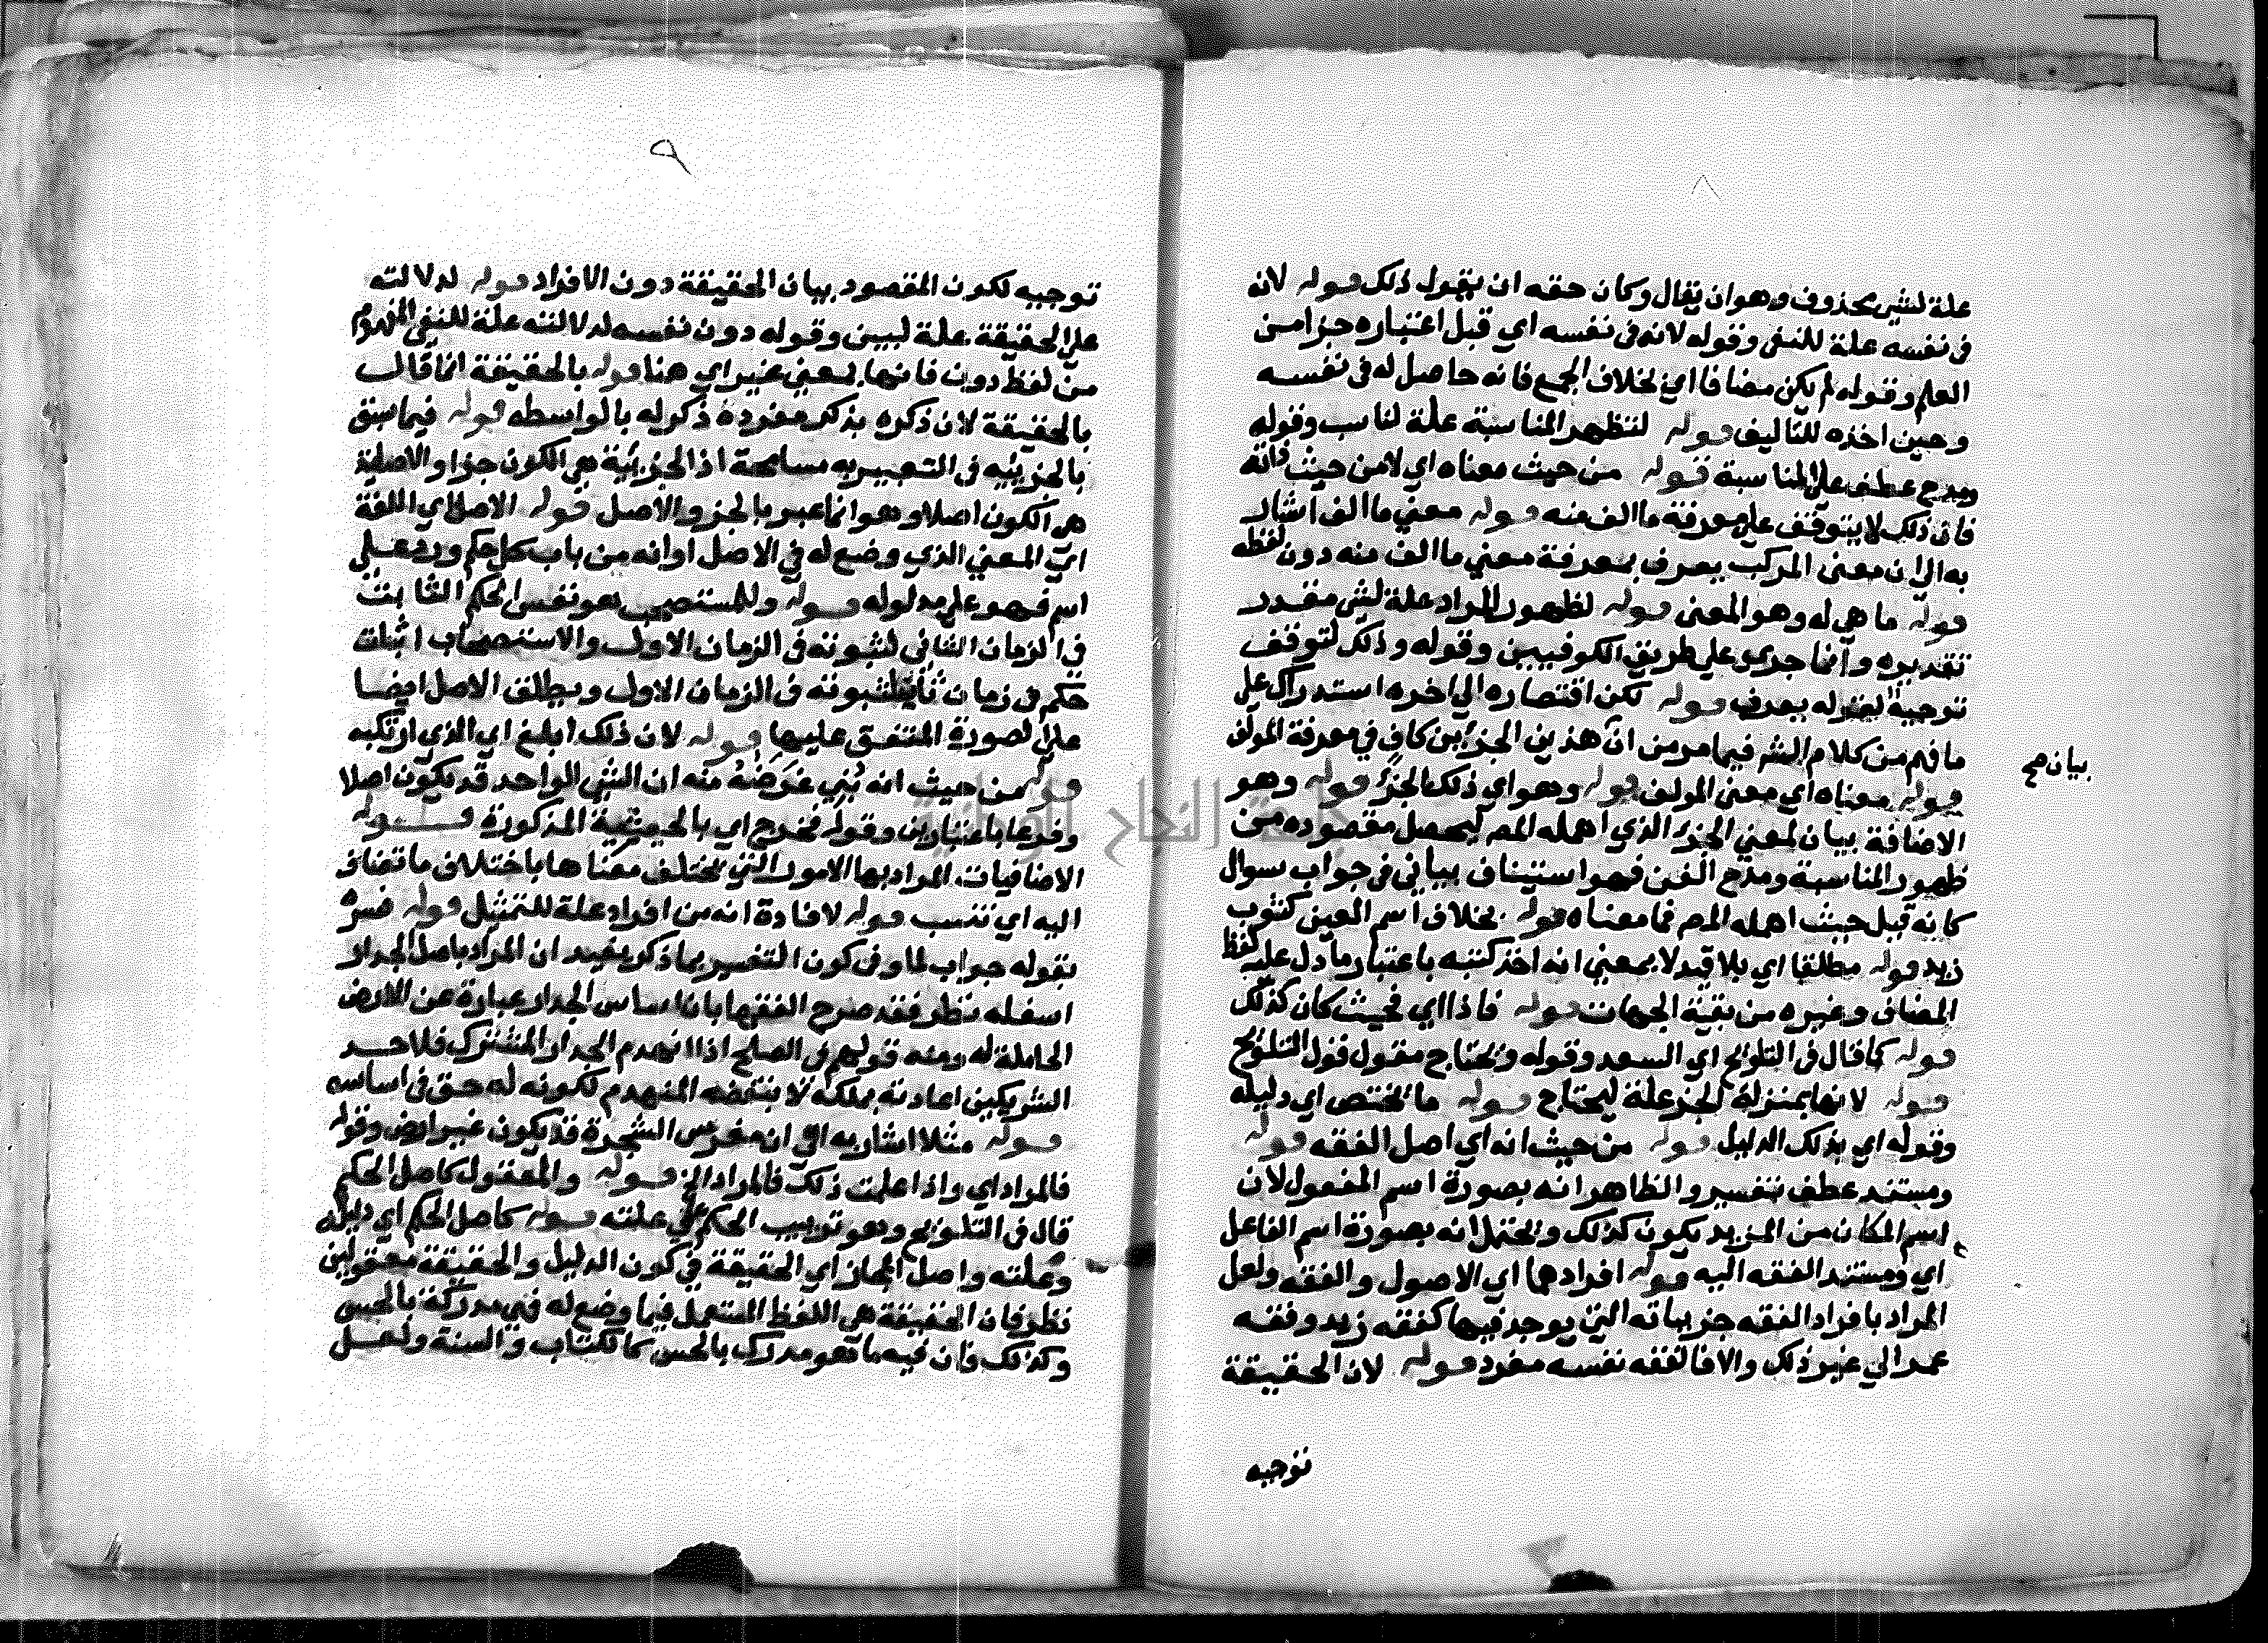 علة لشي محذوف وهو ان يقال وكان حقه ان يقول ذلك قوله لانه
في نفسه علة للنفي وقوله لانه في نفسه اي قبل اعتباره جزا من
العلم وقوله لم يكن مضافا اي بخلاف الجمع فانه حاصل له في نفسه
وحين اخذه للتاليف قوله لتظهر المناسبة علة لناسب وقوله
ومدح عطف على المناسبة قوله من حيث معناه اي لا من حيث ذاته
فان ذلك لا يتوقف على معرفة ما الف منه قوله معني ما الف اشار
به الي ان معنى المركب يعرف بمعرفة معني ما الف منه دون لفظه
قوله ما هي له وهو المعنى قوله لظهور المراد علة لشي مقدر
تقديره وانما جري علي طريق الكوفيين وقوله وذلك لتوقف
توجيه لقوله بعرف قوله لكن اقتصاره الي اخره استدراك علي
ما فهم من كلام الشر فيما مر من ان هذين الجزئين كاف في معرفة المولف
بيان صح
قوله معناه اي معنى المولف قوله وهو اي ذلك الجزؤ قوله وهو
الاضافة بيان لمعني الجزؤ الذي اهمله المص ليحصل مقصوده من
ظهور المناسبة ومدح الفن فهو استيناف بياني في جواب سوال
كانه قيل حيث اهمله المص فما معناه قوله بخلاف اسم العين كثوب
زيد قوله مطلقا اي بلا قيد لا بمعني انه اخذ كنبه باعتبار ما دل عليه لفظ
المضاف وغيره من بقية الجهات قوله فاذا اي فحيث كان كذلك
قوله كما قال في التلويح اي السعد وقوله ويحتاج مقول قول التلويح
قوله لانها بمنزلة الجزؤ علة ليحتاج قوله ما يختص اي دليله
وقوله اي بذلك الدليل قوله من حيث انه اي اصل الفقه قوله
ومستند عطف تفسير والظاهر انه بصورة اسم المفعول لان
اسم المكان من المزيد يكون كذلك ويحتمل انه بصورة اسم الفاعل
اي ومستند الفقه اليه قوله افرادهما اي الاصول والفقه ولعل
المراد بافراد الفقه جزيياته التي يوجد فيها كفقه زيد وفقه
عمر الي غير ذلك والا فالفقه نفسه مفرد قوله لان الحقيقة
توجيه
٩
توجيه لكون المقصود بيان الحقيقة دون الافراد قوله لدلالته
على الحقيقة علة لبين وقوله دون نفسه لدلالته علة للنفي المفهوم
من لفظ دون فانها بمعني غير اي هنا قوله بالحقيقة انما قال
بالحقيقة لان ذكره بذكر مفرده ذكر له بالواسطه قوله فيما سبق
بالجزئيه في التعبير به مسامحة اذ الجزئية هي الكون جزا والاصلية
هي الكون اصلا وهو انما عبر بالجزؤ والاصل قوله الاصل اي اللغة
اي المعني الذي وضع له في الاصل او انه من باب كل حكم ورد علي
اسم فهو علي مدلوله قوله وللمستصحب هو نفس الحكم الثابت
في الزمان الثاني لثبوته في الزمان الاول والاستصحاب اثبات
حكم في زمان ثان لثبوته في الزمان الاول ويطلق الاصل ايضا
على الصورة المتفق عليها قوله لان ذلك ابلغ اي الذي ارتكبه
قوله من حيث انه بُني غرضه منه ان الشي الواحد قد يكون اصلا
وفرعا باعتبارين وقوله فخرج اي بالحيثية المذكورة قوله
الاضافيات المراد بها الامور التي يختلف معناها باختلاف ما تضاف
اليه اي تنسب قوله لافادة انه من افراد علة للتمثيل قوله فسره
بقوله جواب لما وفي كون التفسير بما ذكر يفيد ان المراد باصل الجدار
اسفله نظر فقد صرح الفقها بان اساس الجدار عبارة عن الارض
الحاملة له ومنه قولهم في الصلح اذا انهدم الجدار المشترك فلاحد
الشريكين اعادته بملكه لا بنقضه المنهدم لكونه له حق في اساسه
قوله مثلا اشار به الي ان مغرس الشجرة قد يكون غير ارض وقوله
فالمراد اي واذا علمت ذلك فالمراد الخ قوله والمعقول كاصل الحكم
قال في التلويح وهو ترتيب الحكم علي علته قوله كاصل الحكم اي دليله
وعلته واصل المجاز اي الحقيقة في كون الدليل والحقيقة معقولين
نظر فان الحقيقة هي اللفظ المستعمل فيما وضع له فهي مدركة بالحس
وكذلك فان فيه ما هو مدرك بالحس كالكتاب والسنة ولعل
جامعة النجاح الوطنية